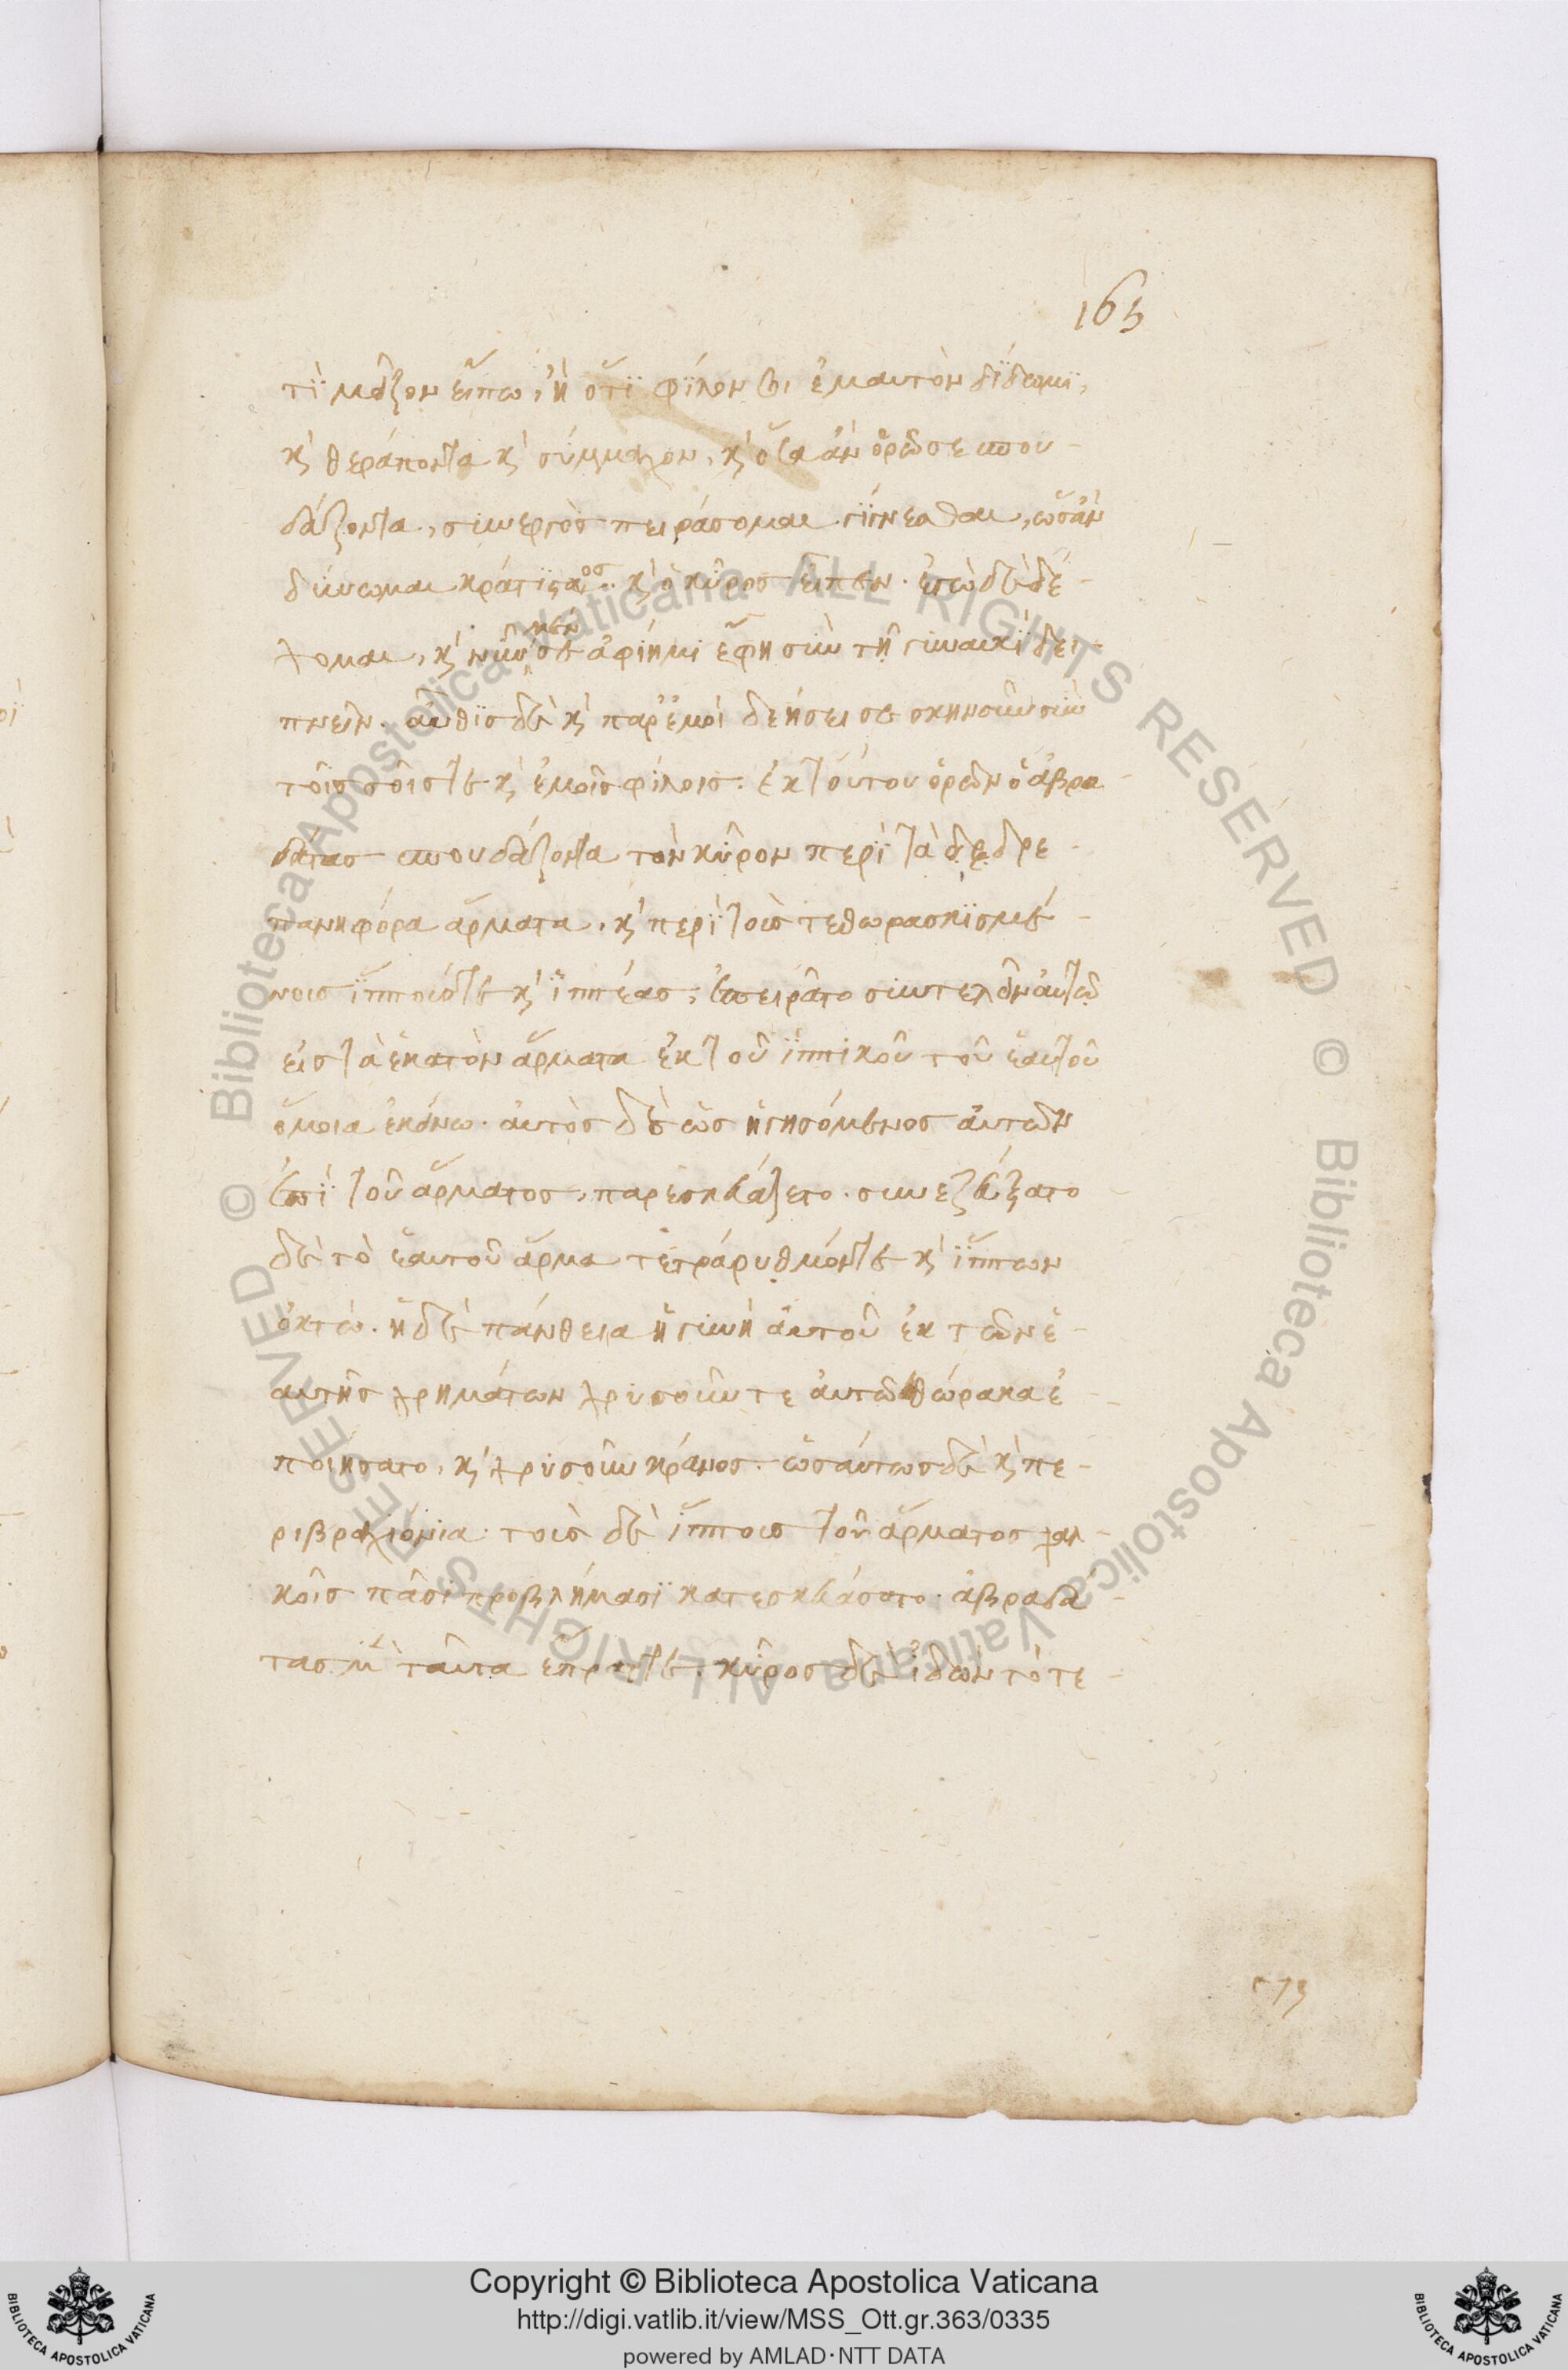 165
τὶ μεῖζον εἴπω, ἢ ὅτι φίλον σοι ἐμαυτὸν δίδωμι,
κ̀ θεράποντα κ̀ σύμμαχον, κ̀ ὅσα ἂν ὁρῶ σε σπου-
δάζοντα, συνεργὸς πειράσομαι γίγνεσθαι, ὡς ἂν
δύνωμαι κράτιστος. κ̀ ὁ κῦρος εἶπεν. ἐγὼ δὲ δέ-
χομαι, κ̀ νῦν μέν σε ἀφίημι ἔφη σὺν τῇ γυναικὶ δει-
πνεῖν. αὖθις δὲ κ̀ παρ' ἐμοὶ δεήσει σε σκηνοῦν σὺν
τοῖς σοῖς τε κ̀ ἐμοῖς φίλοις. ἐκ τούτου ὁρῶν ὁ ἀβρα-
δάτας σπουδάζοντα τὸν κῦρον περὶ τὰ δρεδρε-
πανηφόρα ἅρματα, κ̀ περὶ τοὺς τεθωρακισμέ-
νους ἵππους τε κ̀ ἱππέας, ἐπειρᾶτο συντελεῖν αὐτῷ
εἰς τὰ ἑκατὸν ἅρματα ἐκ τοῦ ἱππικοῦ τοῦ ἑαυτοῦ
ὅμοια ἐκείνῳ. αὐτὸς δὲ ὡς ἡγησόμενος αὐτῶν
ἐπὶ τοῦ ἅρματος, παρεσκευάζετο. συνεζεύξατο
δὲ τὸ ἑαυτοῦ ἅρμα τετράρυθμόν τε κ̀ ἵππων
ὀκτώ. ἡ δὲ πάνθεια ἡ γυνὴ αὐτοῦ ἐκ τῶν ἑ-
αυτῆς χρημάτων χρυσοῦν τε αὐτῷ θώρακα ἐ-
ποιήσατο, κ̀ χρυσοῦν κράνος. ὡσαύτως δὲ κ̀ πε-
ριβραχιόνια. τοὺς δὲ ἵππους τοῦ ἅρματος χαλ-
κοῖς πᾶσι προβλήμασι κατεσκευάσατο. ἀβραδά-
τας μὲν ταῦτα ἔπραττε. κῦρος δὲ ἰδὼν τότε-
Copyright © Biblioteca Apostolica Vaticana
http://digi.vatlib.it/view/MSS_Ott.gr.363/0335
powered by AMLAD·NTT DATA
© Biblioteca Apostolica Vaticana ALL RIGHTS RESERVED © Biblioteca Apostolica Vaticana ALL RIGHTS RESERVED
BIBLIOTECA APOSTOLICA VATICANA
BIBLIOTECA APOSTOLICA VATICANA